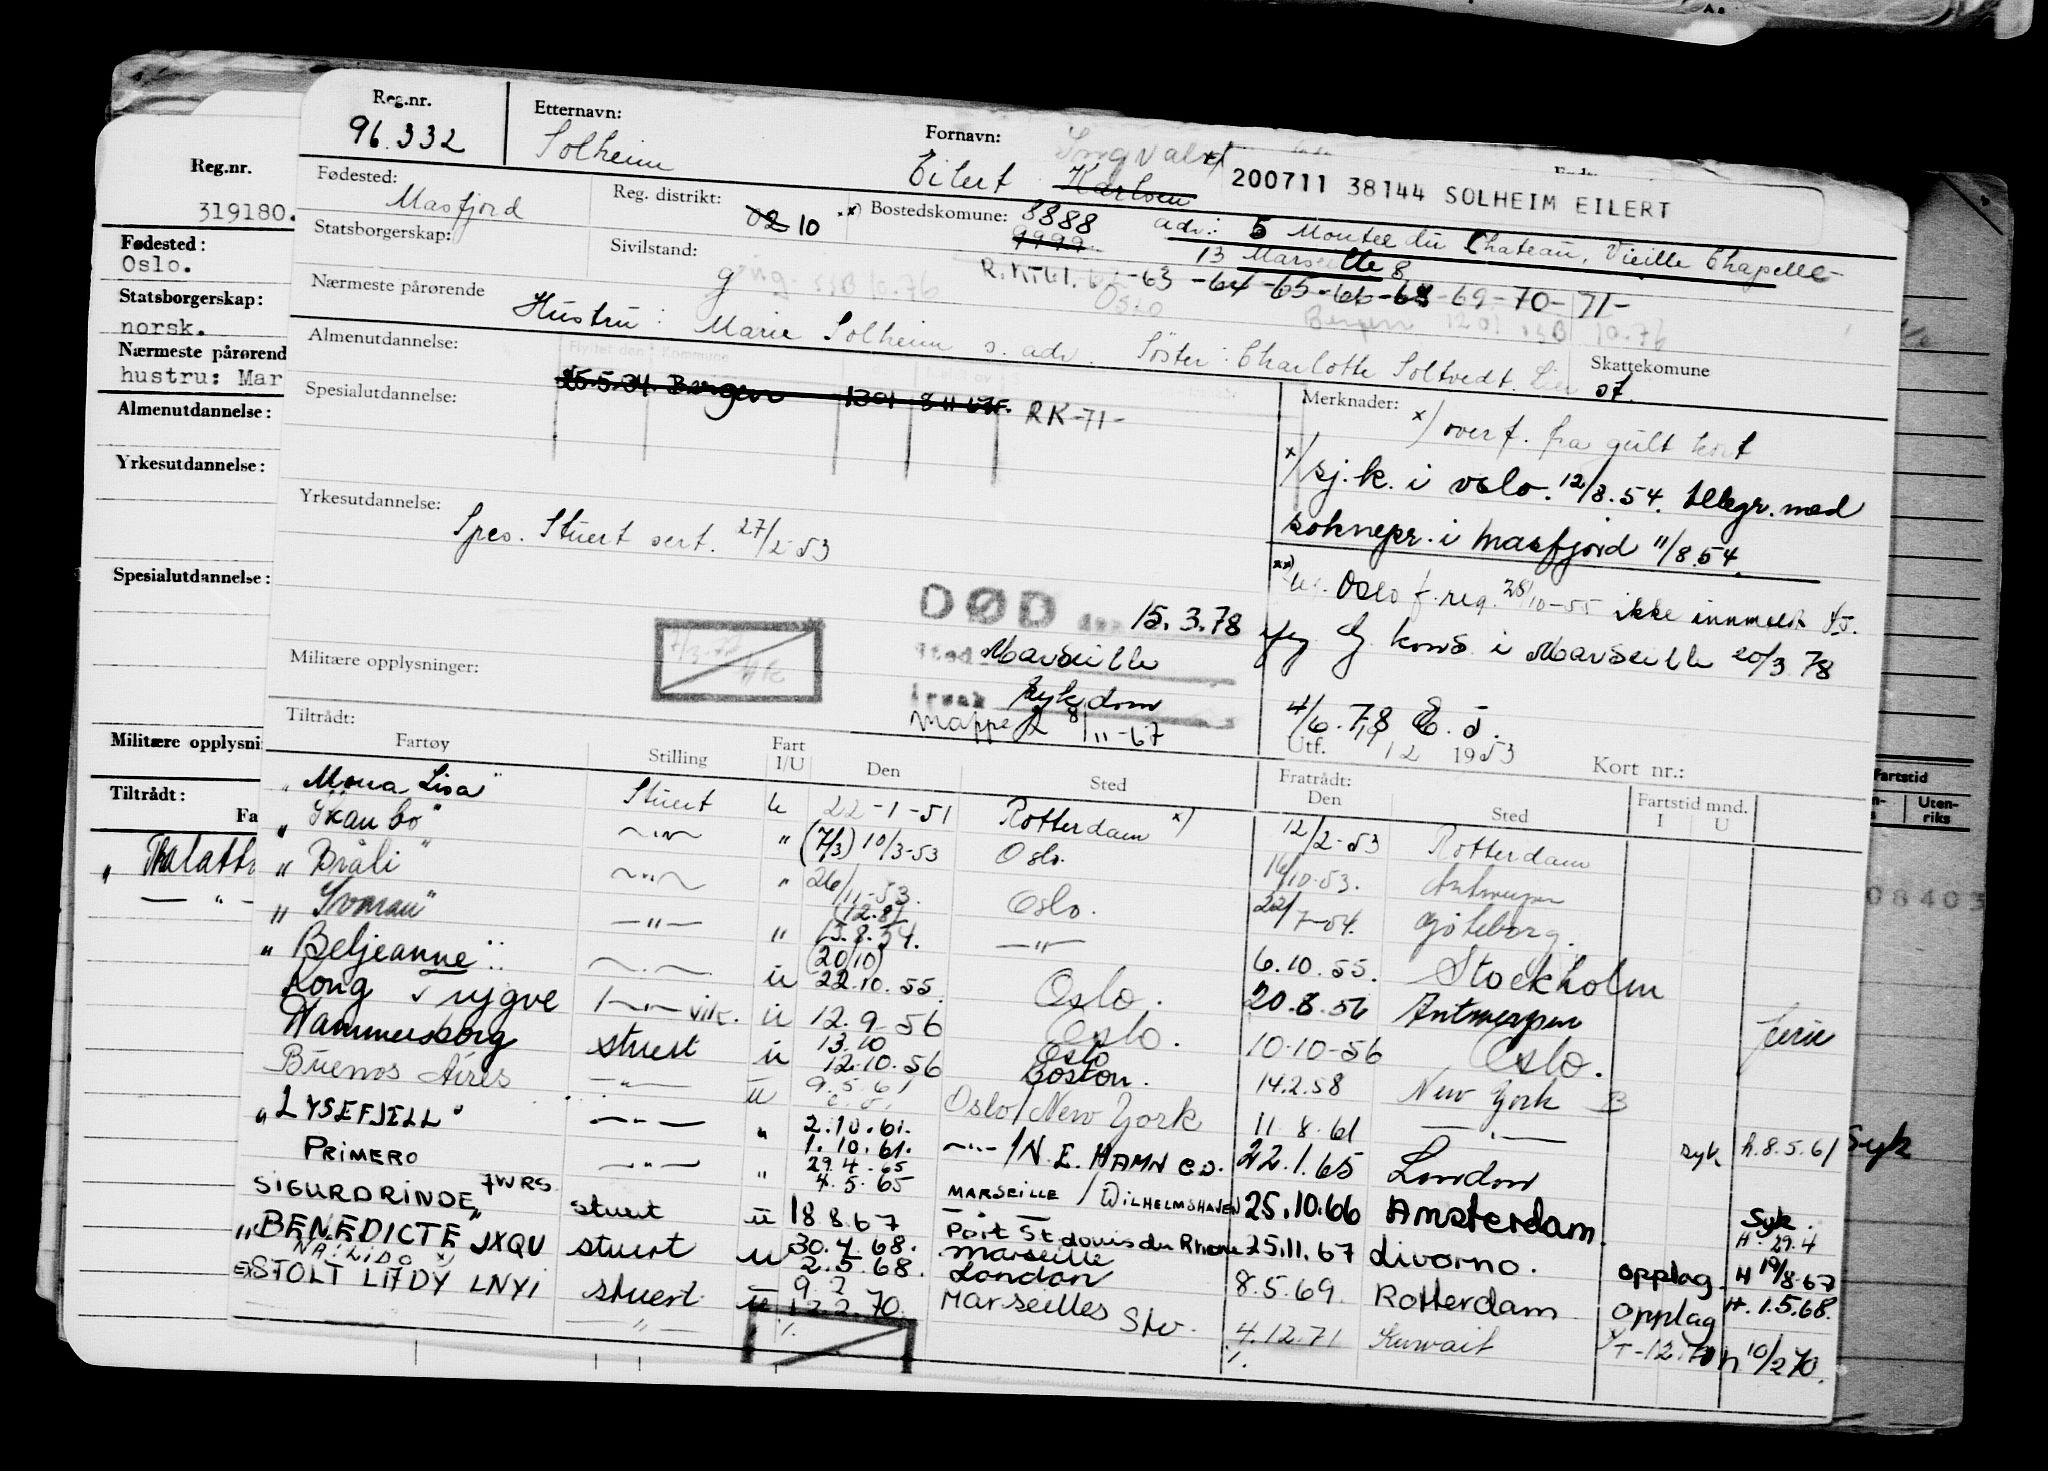 Reg.nr.
96.332
Etternavn:
Solheim
Fornavn:
Eilert Karlsen
Ingvald
200711 38144 SOLHEIM EILERT
Fødested:
Masfjord
Reg. distrikt:
02 10
Bostedskomune: 8888
9999
adr.: 5 Montee du Chateau, Vieille Chapelle
13 Marseille 8
Statsborgerskap:
Sivilstand:
g
R.K-61. 62-63-64-65-66-68-69-70-71-
Oslo
Bergen 1201 10.76
Nærmeste pårørende
Hustru: Marie Solheim s. adr. Søster: Charlotte Soltvedt. Lier st.
Skattekomune
Almenutdannelse:
Flyttet den Kommune
Spesialutdannelse:
25.5.34. Bergen 1301
RK-71-
Merknader:
x) overf. fra gult kort
x) sj.k. i Oslo. 12/8.54. tlegr. med
soknepr. i Masfjord 11/8.54.
xx) Oslo f.reg. 25/10-55 ikke innmeldt
kons. i Marseille 20/3 78
4/6.78 E.J.
Yrkesutdannelse:
Spes. Stuert sert. 27/2-53
DØD 15.3.78
Sted Marseille
Årsak Sykdom
Mappe 8/11-67
Militære opplysninger:
Utf. 12 1953
Kort nr.:
Tiltrådt:
Fartøy
Stilling
Fart I/U
Den
Sted
Fratrådt:
Den
Sted
Fartstid mnd.
I U
"Mona Lisa" Stuert u 22-1-51 Rotterdam x) 12/2-53 Rotterdam
"Skaubo" —"— " (7/3) 10/3-53 Oslo. 16/10-53. Antwerpen
"Bråli" —"— " 26/11-53. Oslo. 22/7-54. Göteborg.
"Svaran" —"— " (12.8) 13.8.54. —"— 6.10.55. Stockholm
"Beljeanne" —"— u (20/10) 22.10.55. Oslo. 20.8.56 Antwerpen
Kong Trygve —"— vik. u 12.9.56 Oslo. 10-10-56 Oslo. ferie
Hammersborg stuert u 13.10 12.10.56 Oslo Boston. 14.2.58 New York
Buenos Aires —"— u 9.5.61 Oslo/New York 11.8.61 —"— syk h.8.5.61 Syk
"LYSEFJELL" —"— " 2.10.61. 1.10.61. —"—/N.E. HAMN CO. 22.1.65 London
PRIMERO —"— " 29.4.65 4.5.65 MARSEILLE/WILHELMSHAVEN 25.10.66 Amsterdam. Syk. H. 29.4
SIGURD RINDE, 7WRS stuert u 18 8.67 Port St Louis du Rhone 25.11.67 Livorno. opplag H 19/8-67
"BENEDICTE" JXQU stuert u 30.4.68. 2.5.68. Marseille London 8.5.69. Rotterdam opplag H. 1.5.68.
NA: LIDO x)
EX STOLT LADY LNYI stuert u 9.2 12.2.70. Marseilles 4.12.71 Kuwait T-12.70 h 10/2 70.
—"— ./. Stv. ./.
Reg.nr.
319180.
Fødested:
Oslo.
Statsborgerskap:
norsk.
Nærmeste pårørend
hustru: Mar
Almenutdannelse:
Yrkesutdannelse:
Spesialutdannelse:
Militære opplysni
Tiltrådt:
Fa
"Thalatt
— " —
Fartstid
Uten-
riks
08403